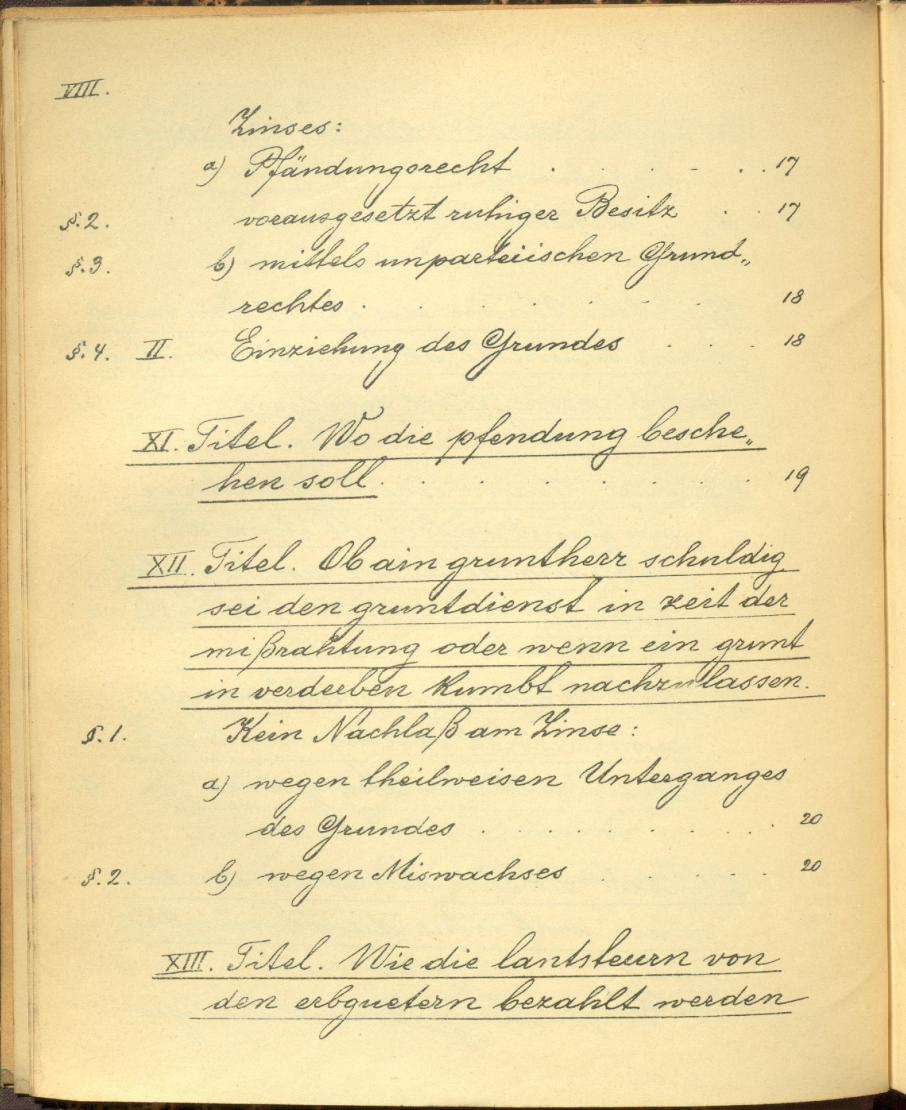 VIII.
Zinses:
a) Pfändungsrecht . . . . . 17
§. 2. vorausgesetzt ruhiger Besitz . . 17
§. 3. b) mittels unparteiischen Grund„
rechtes . . . . . . . 18
§. 4. II. Einziehung des Grundes . . . 18
XI. Titel. Wo die pfendung besche„
hen soll . . . . . . . 19
XII. Titel. Ob ain gruntherr schuldig
sei den gruntdienst in zeit der
mißrahtung oder wenn ein grunt
in verderben kumbt nachzulassen.
§. 1. Kein Nachlaß am Zinse:
a) wegen theilweisen Unterganges
des Grundes . . . . . . . 20
§. 2. b) wegen Miswachses . . . . 20
XIII. Titel. Wie die lantsteuern von
den erbguetern bezahlt werden